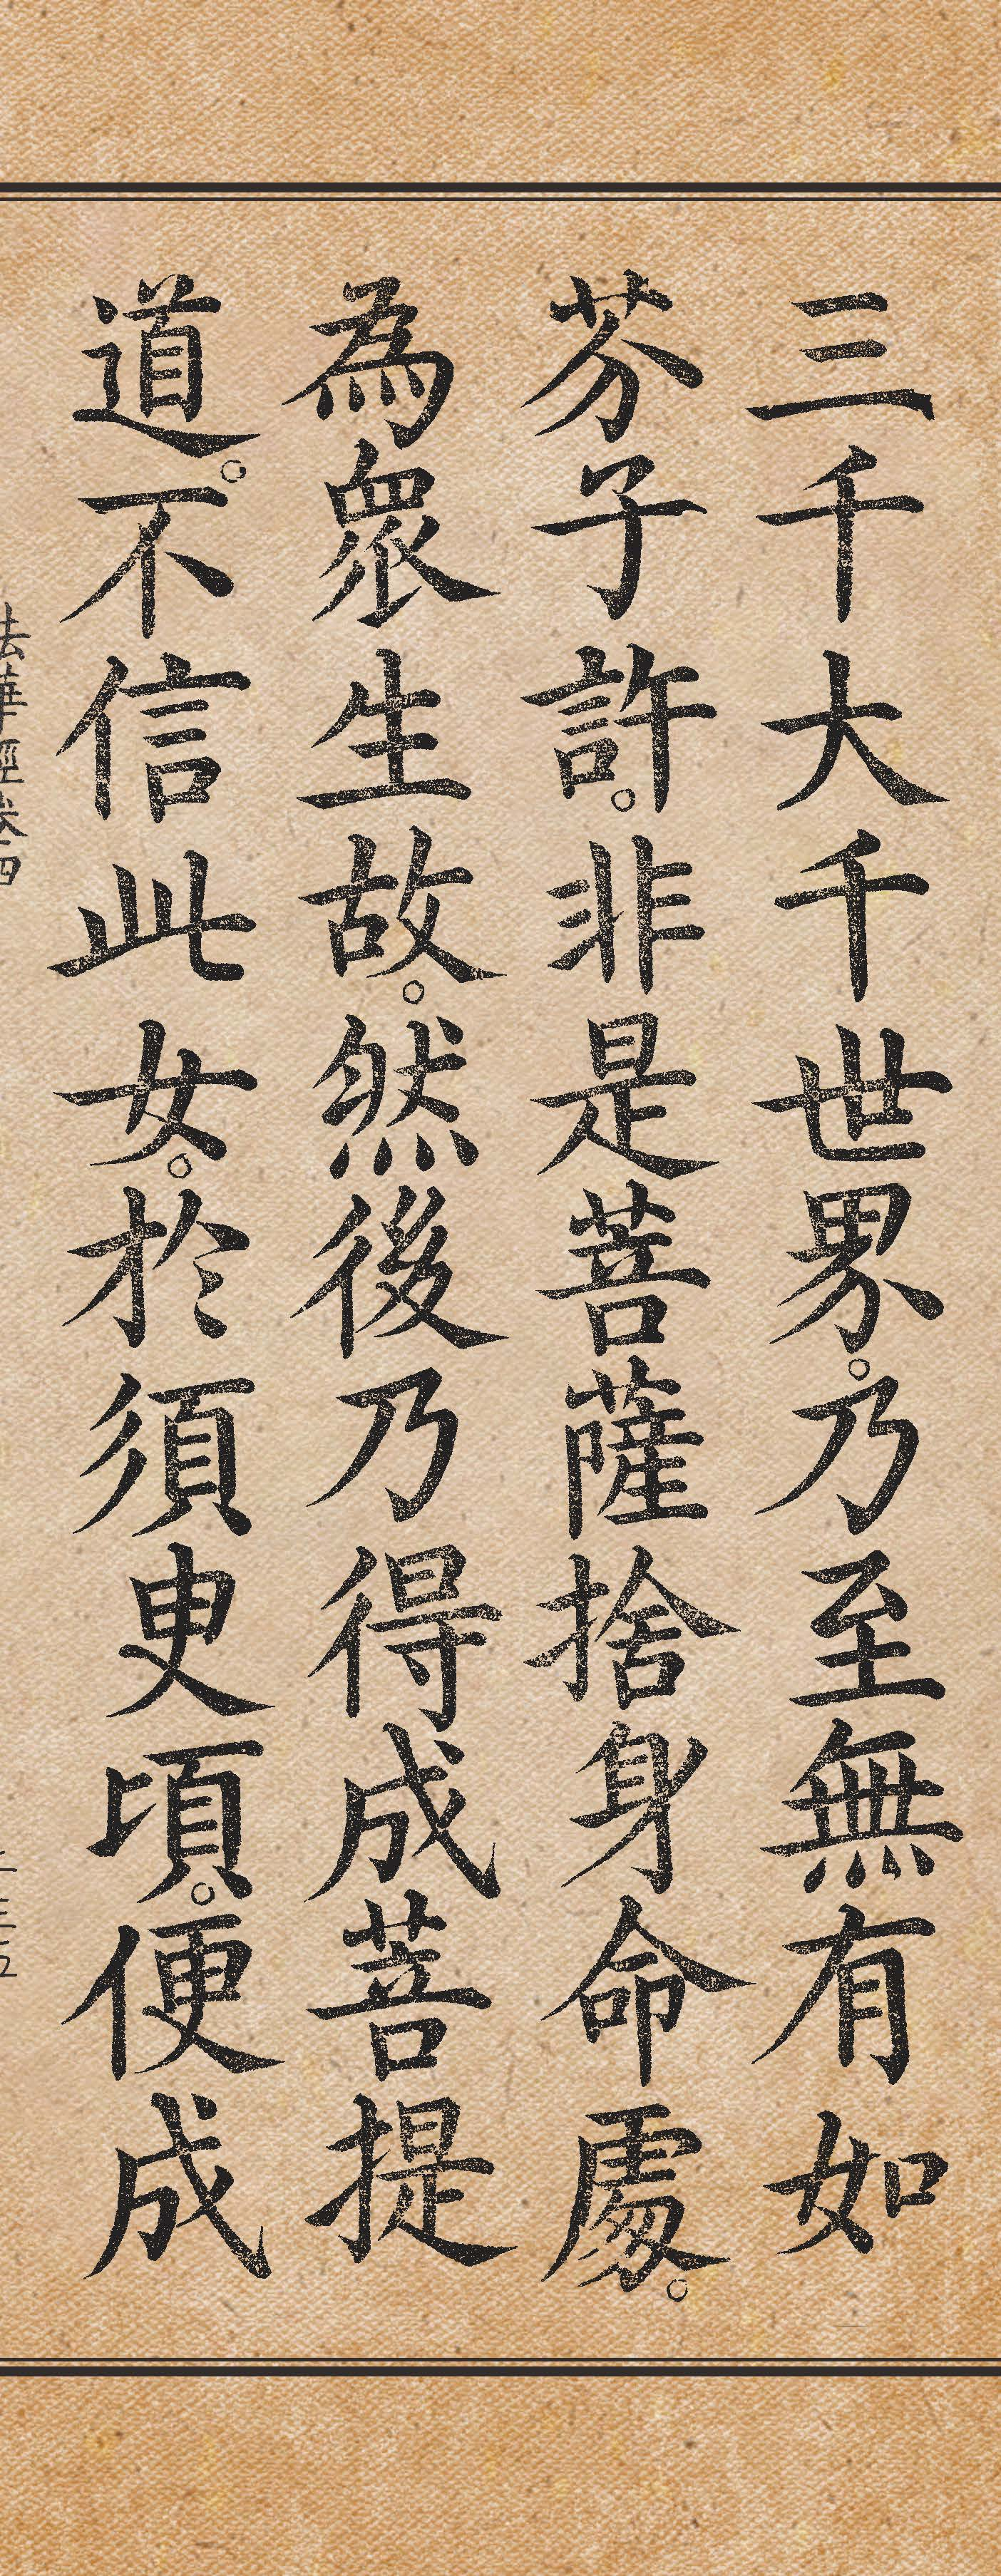 三千大千世界。乃至無有如
芥子許。非是菩薩捨身命處。
為眾生故。然後乃得成菩提
道。不信此女。於須臾頃。便成
法華經卷四